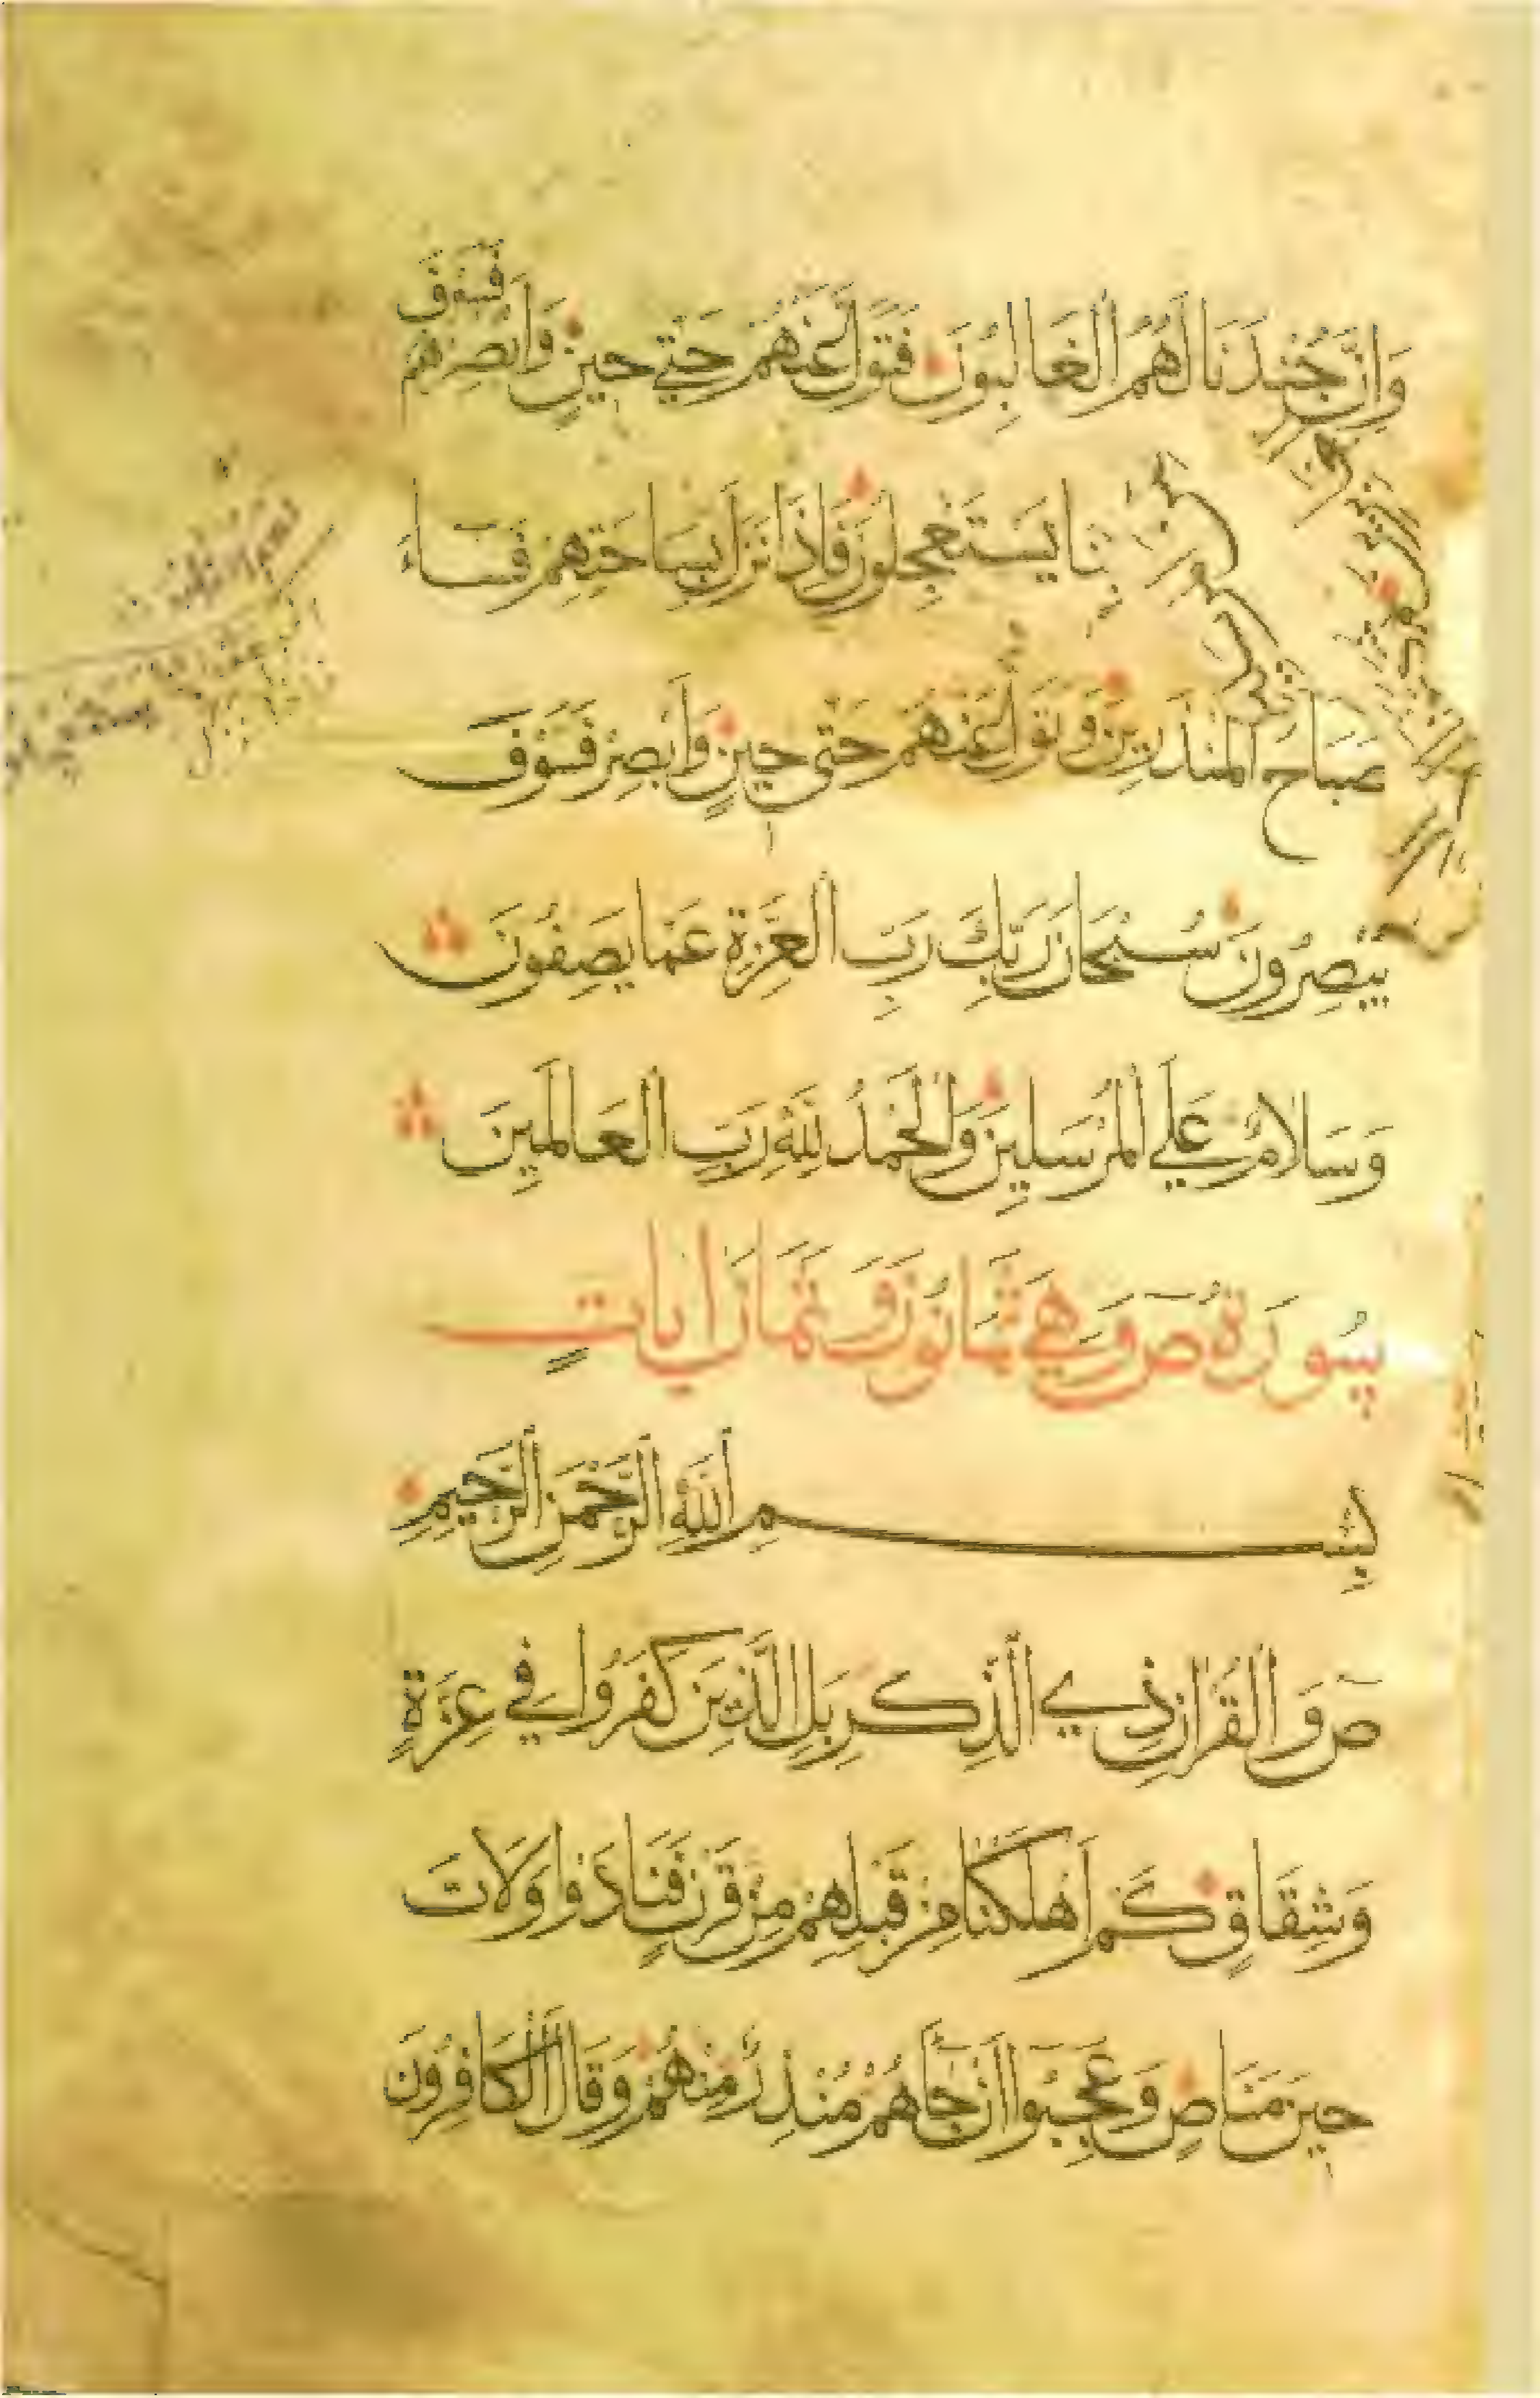 وَإِنَّ جُنْدَنَا لَهُمُ الْغَالِبُونَ فَتَوَلَّ عَنْهُمْ حَتَّى حِينٍ وَأَبْصِرْهُمْ فَسَوْفَ
بْنَا يَسْتَعْجِلُونَ فَإِذَا نَزَلَ بِسَاحَتِهِمْ فَسَاءَ
صَبَاحُ الْمُنْذَرِينَ وَتَوَلَّ عَنْهُمْ حَتَّى حِينٍ وَأَبْصِرْ فَسَوْفَ
يُبْصِرُونَ سُبْحَانَ رَبِّكَ رَبِّ الْعِزَّةِ عَمَّا يَصِفُونَ
وَسَلَامٌ عَلَى الْمُرْسَلِينَ وَالْحَمْدُ لِلَّهِ رَبِّ الْعَالَمِينَ
سُورَةُ ص وَهِيَ ثَمَانُونَ وَثَمَانَ آيَاتٍ
بِسْمِ اللَّهِ الرَّحْمَنِ الرَّحِيمِ
ص وَالْقُرْآنِ ذِي الذِّكْرِ بَلِ الَّذِينَ كَفَرُوا فِي عِزَّةٍ
وَشِقَاقٍ كَمْ أَهْلَكْنَا مِنْ قَبْلِهِمْ مِنْ قَرْنٍ فَنَادَوْا وَلَاتَ
حِينَ مَنَاصٍ وَعَجِبُوا أَنْ جَاءَهُمْ مُنْذِرٌ مِنْهُمْ وَقَالَ الْكَافِرُونَ